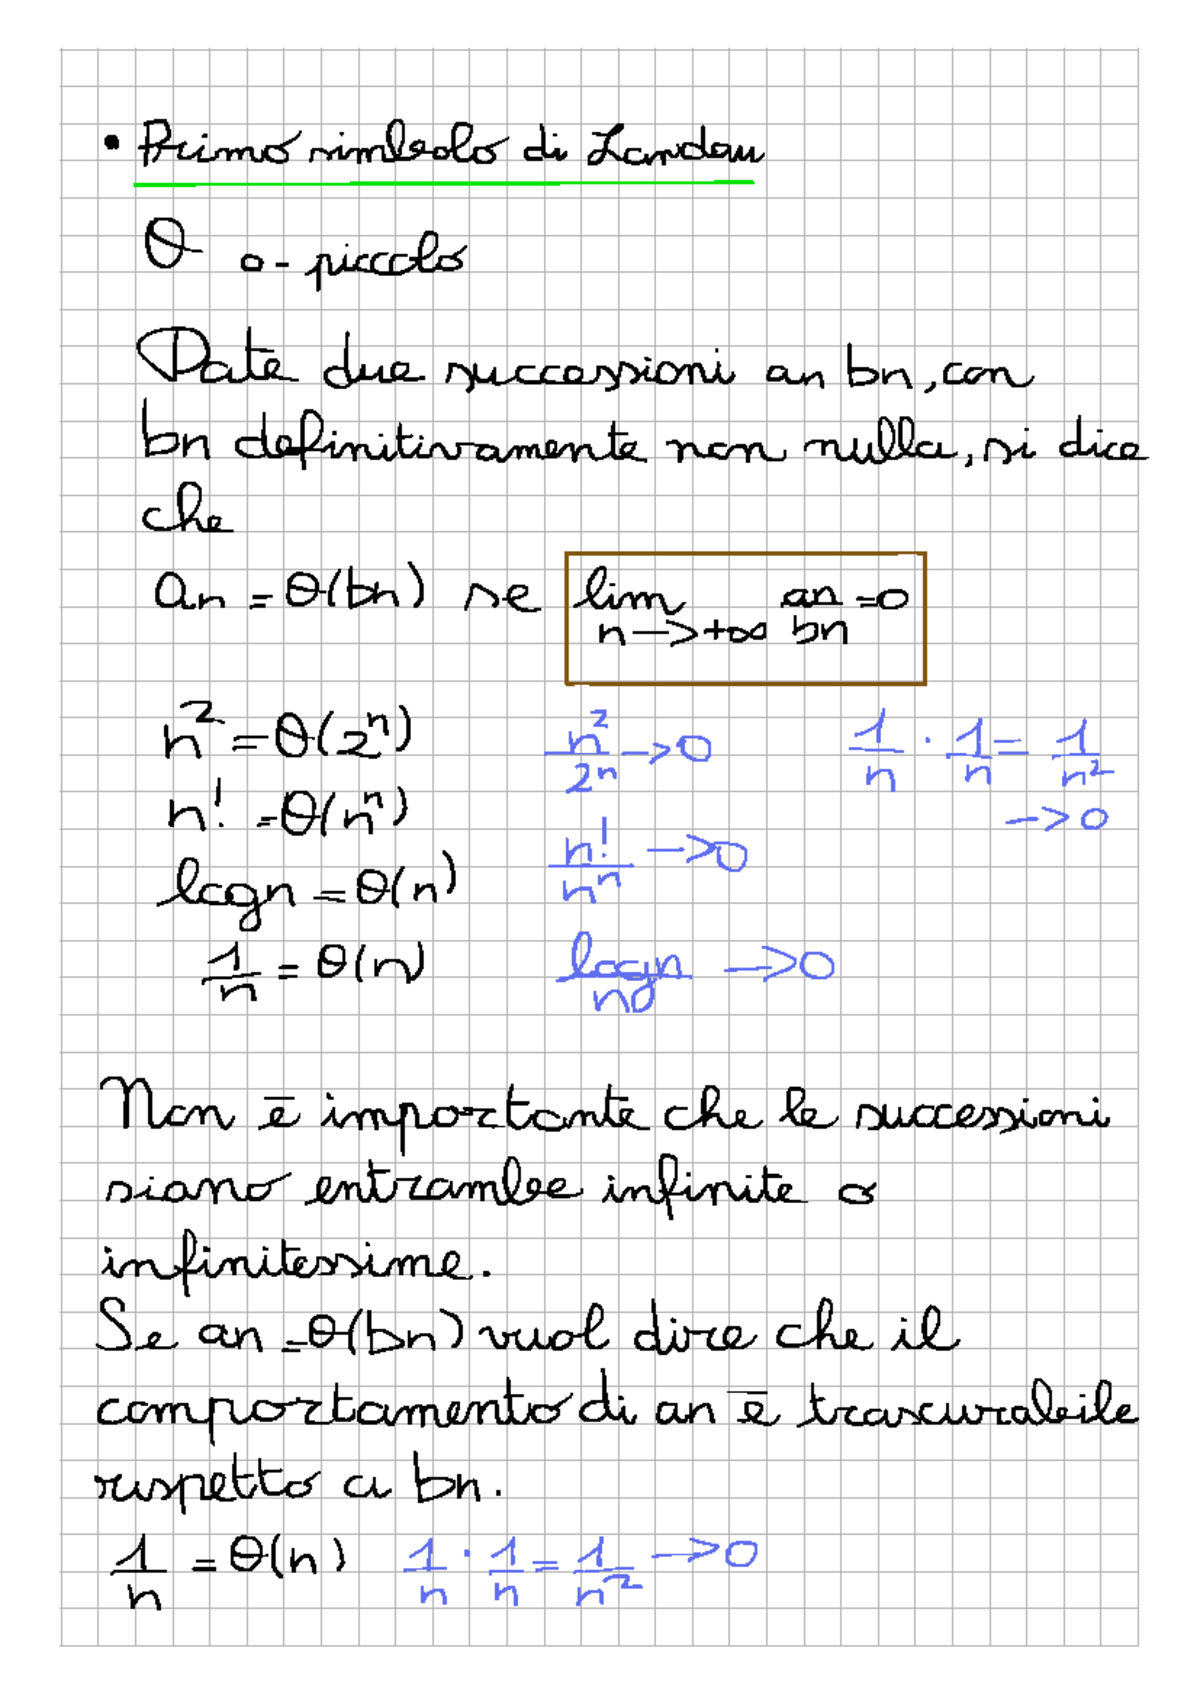 • Primo simbolo di Landau
θ o-piccolo
Date due successioni an bn, con
bn definitivamente non nulla, si dice
che
an = θ(bn) se lim n->+∞ an/bn =0
n² = θ(2ⁿ) n²/2ⁿ ->0 1/n · 1/n = 1/n² ->0
n! = θ(nⁿ) n!/nⁿ ->0
logn = θ(n) logn/n ->0
1/n = θ(n)
Non è importante che le successioni
siano entrambe infinite o
infinitessime.
Se an = θ(bn) vuol dire che il
comportamento di an è trascurabile
rispetto a bn.
1/n = θ(n) 1/n · 1/n = 1/n² ->0